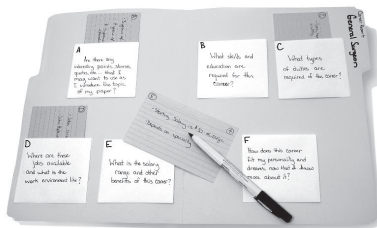 Career Report
General Surgeon
A
Are there any
interesting points, stories,
quotes, etc. that I
may want to use as
I introduce the topic
of my paper?
B
What skills and
education are
required for this
career?
C
What types
of duties are
required of this career?
D
Where are these
jobs available
and what is the
work environment like?
E
What is the salary
range and other
benefits of this career?
E
Starting Salary is
Depends on specialty
F
How does this career
fit my personality and
dreams now that I know
more about it?